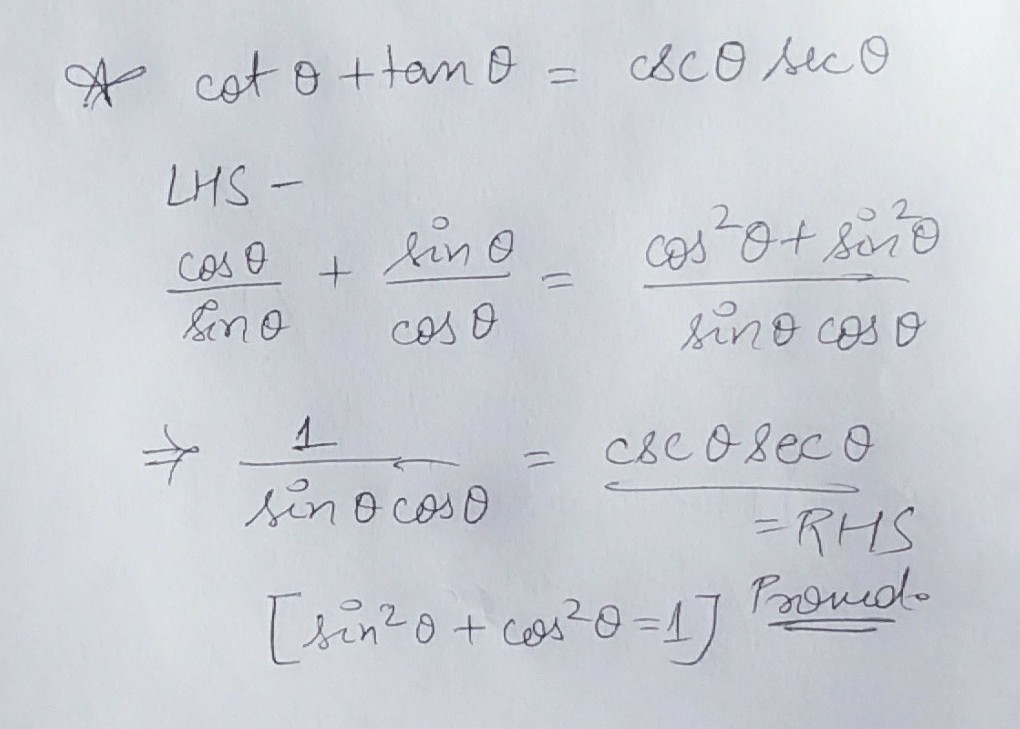 ☆ cot θ + tan θ = csc θ sec θ
LHS -
cos θ / sin θ + sin θ / cos θ = cos²θ + sin²θ / sin θ cos θ
⇒ 1 / sin θ cos θ = csc θ sec θ
= RHS
[sin²θ + cos²θ = 1] Proved.